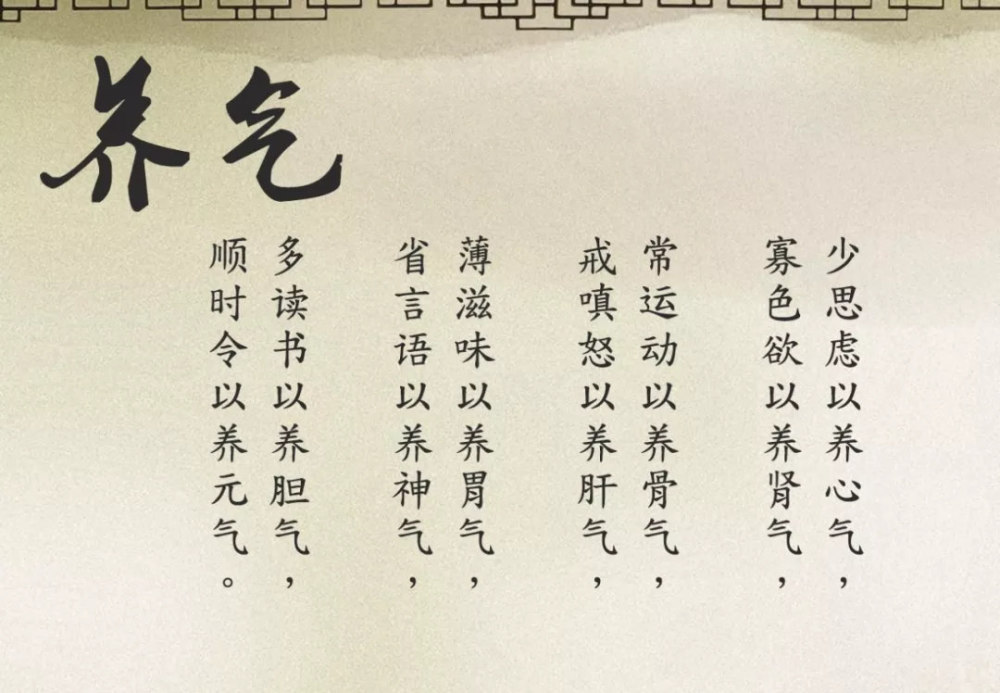 养气
少思虑以养心气，
寡色欲以养肾气，
常运动以养骨气，
戒嗔怒以养肝气，
薄滋味以养胃气，
省言语以养神气，
多读书以养胆气，
顺时令以养元气。